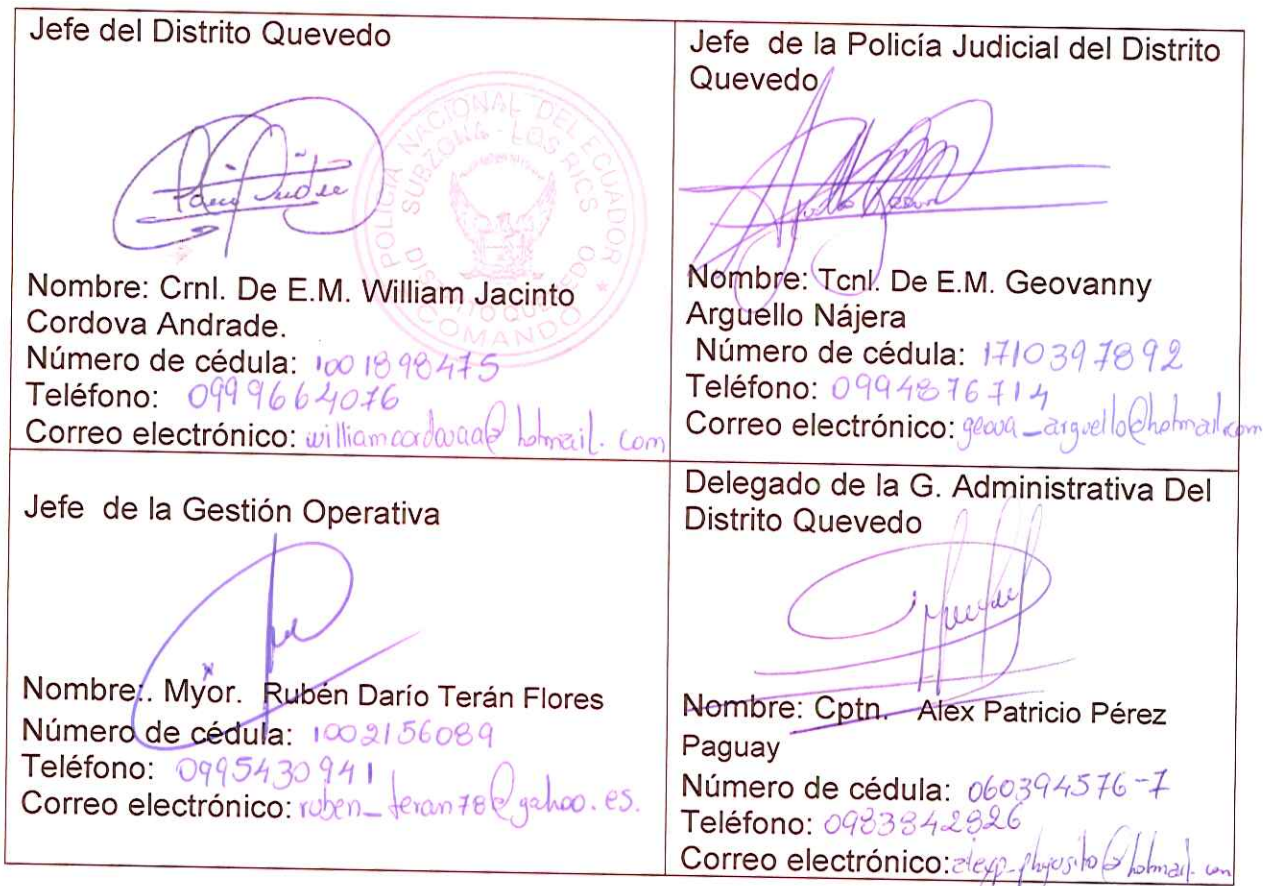 Jefe del Distrito Quevedo
POLICIA NACIONAL DEL ECUADOR
SUBZONA - LOS RIOS
DISTRITO QUEVEDO
COMANDO
Nombre: Crnl. De E.M. William Jacinto
Cordova Andrade.
Número de cédula: 1001898475
Teléfono: 0999664076
Correo electrónico: williamcordovaa@hotmail.com
Jefe de la Policía Judicial del Distrito
Quevedo
Nombre: Tcnl. De E.M. Geovanny
Arguello Nájera
Número de cédula: 1710397892
Teléfono: 0994876714
Correo electrónico: geova_arguello@hotmail.com
Jefe de la Gestión Operativa
Nombre:. Myor. Rubén Darío Terán Flores
Número de cédula: 1002156089
Teléfono: 0995430941
Correo electrónico: ruben_teran78@yahoo.es.
Delegado de la G. Administrativa Del
Distrito Quevedo
Nombre: Cptn. Alex Patricio Pérez
Paguay
Número de cédula: 060394576-7
Teléfono: 0983842826
Correo electrónico: